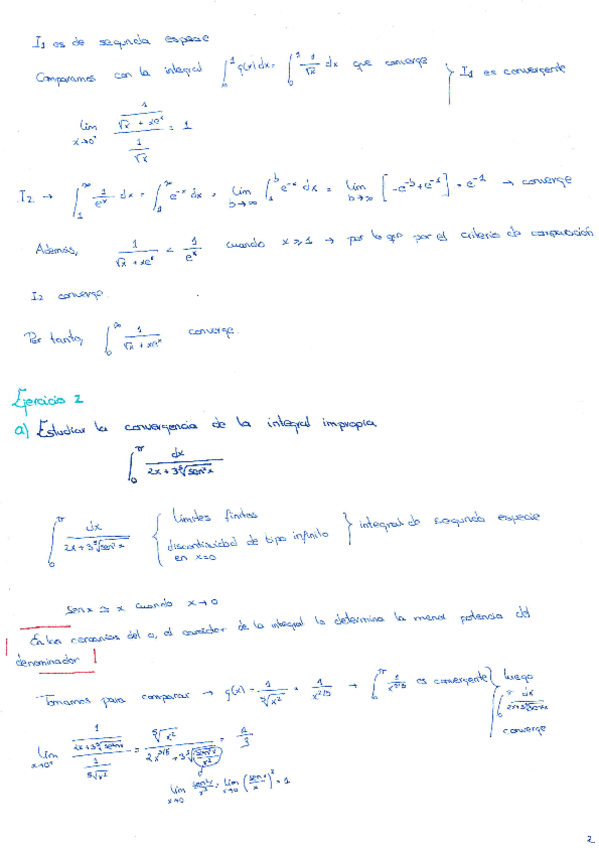 I₁ es de segunda especie
Comparamos con la integral ∫₀¹ g(x)dx = ∫₀¹ 1/√x dx que converge } I₁ es convergente
lim x→0⁺ (1/(√x + xeˣ))/(1/√x) = 1
I₂ → ∫₁^∞ 1/eˣ dx = ∫₁^∞ e⁻ˣ dx = lim b→∞ ∫₁ᵇ e⁻ˣ dx = lim b→∞ [-e⁻ᵇ + e⁻¹] = e⁻¹ → converge
Además, 1/(√x + xeˣ) < 1/eˣ cuando x ≥ 1 → por lo que por el criterio de comparación
I₂ converge.
Por tanto, ∫₀^∞ 1/(√x + xeˣ) converge.
Ejercicio 2
a) Estudiar la convergencia de la integral impropia
∫₀^π dx/(2x + 3⁵√sen²x)
∫₀^π dx/(2x + 3⁵√sen²x) { límites finitos
discontinuidad de tipo infinito en x=0 } integral de segunda especie
sen x ≅ x cuando x→0
En las cercanías del 0, el carácter de la integral lo determina la menor potencia del
denominador
Tomamos para comparar → g(x) = 1/⁵√x² = 1/x^(2/5) → ∫₀^π 1/x^(2/5) es convergente } luego
∫₀^π dx/(2x+3⁵√sen²x)
converge
lim x→0⁺ (1/(2x + 3⁵√sen²x))/(1/⁵√x²) = ⁵√x²/(2x + 3⁵√sen²x) = 1/3
lim x→0 sen²x/x² = lim x→0 (sen x/x)² = 1
2